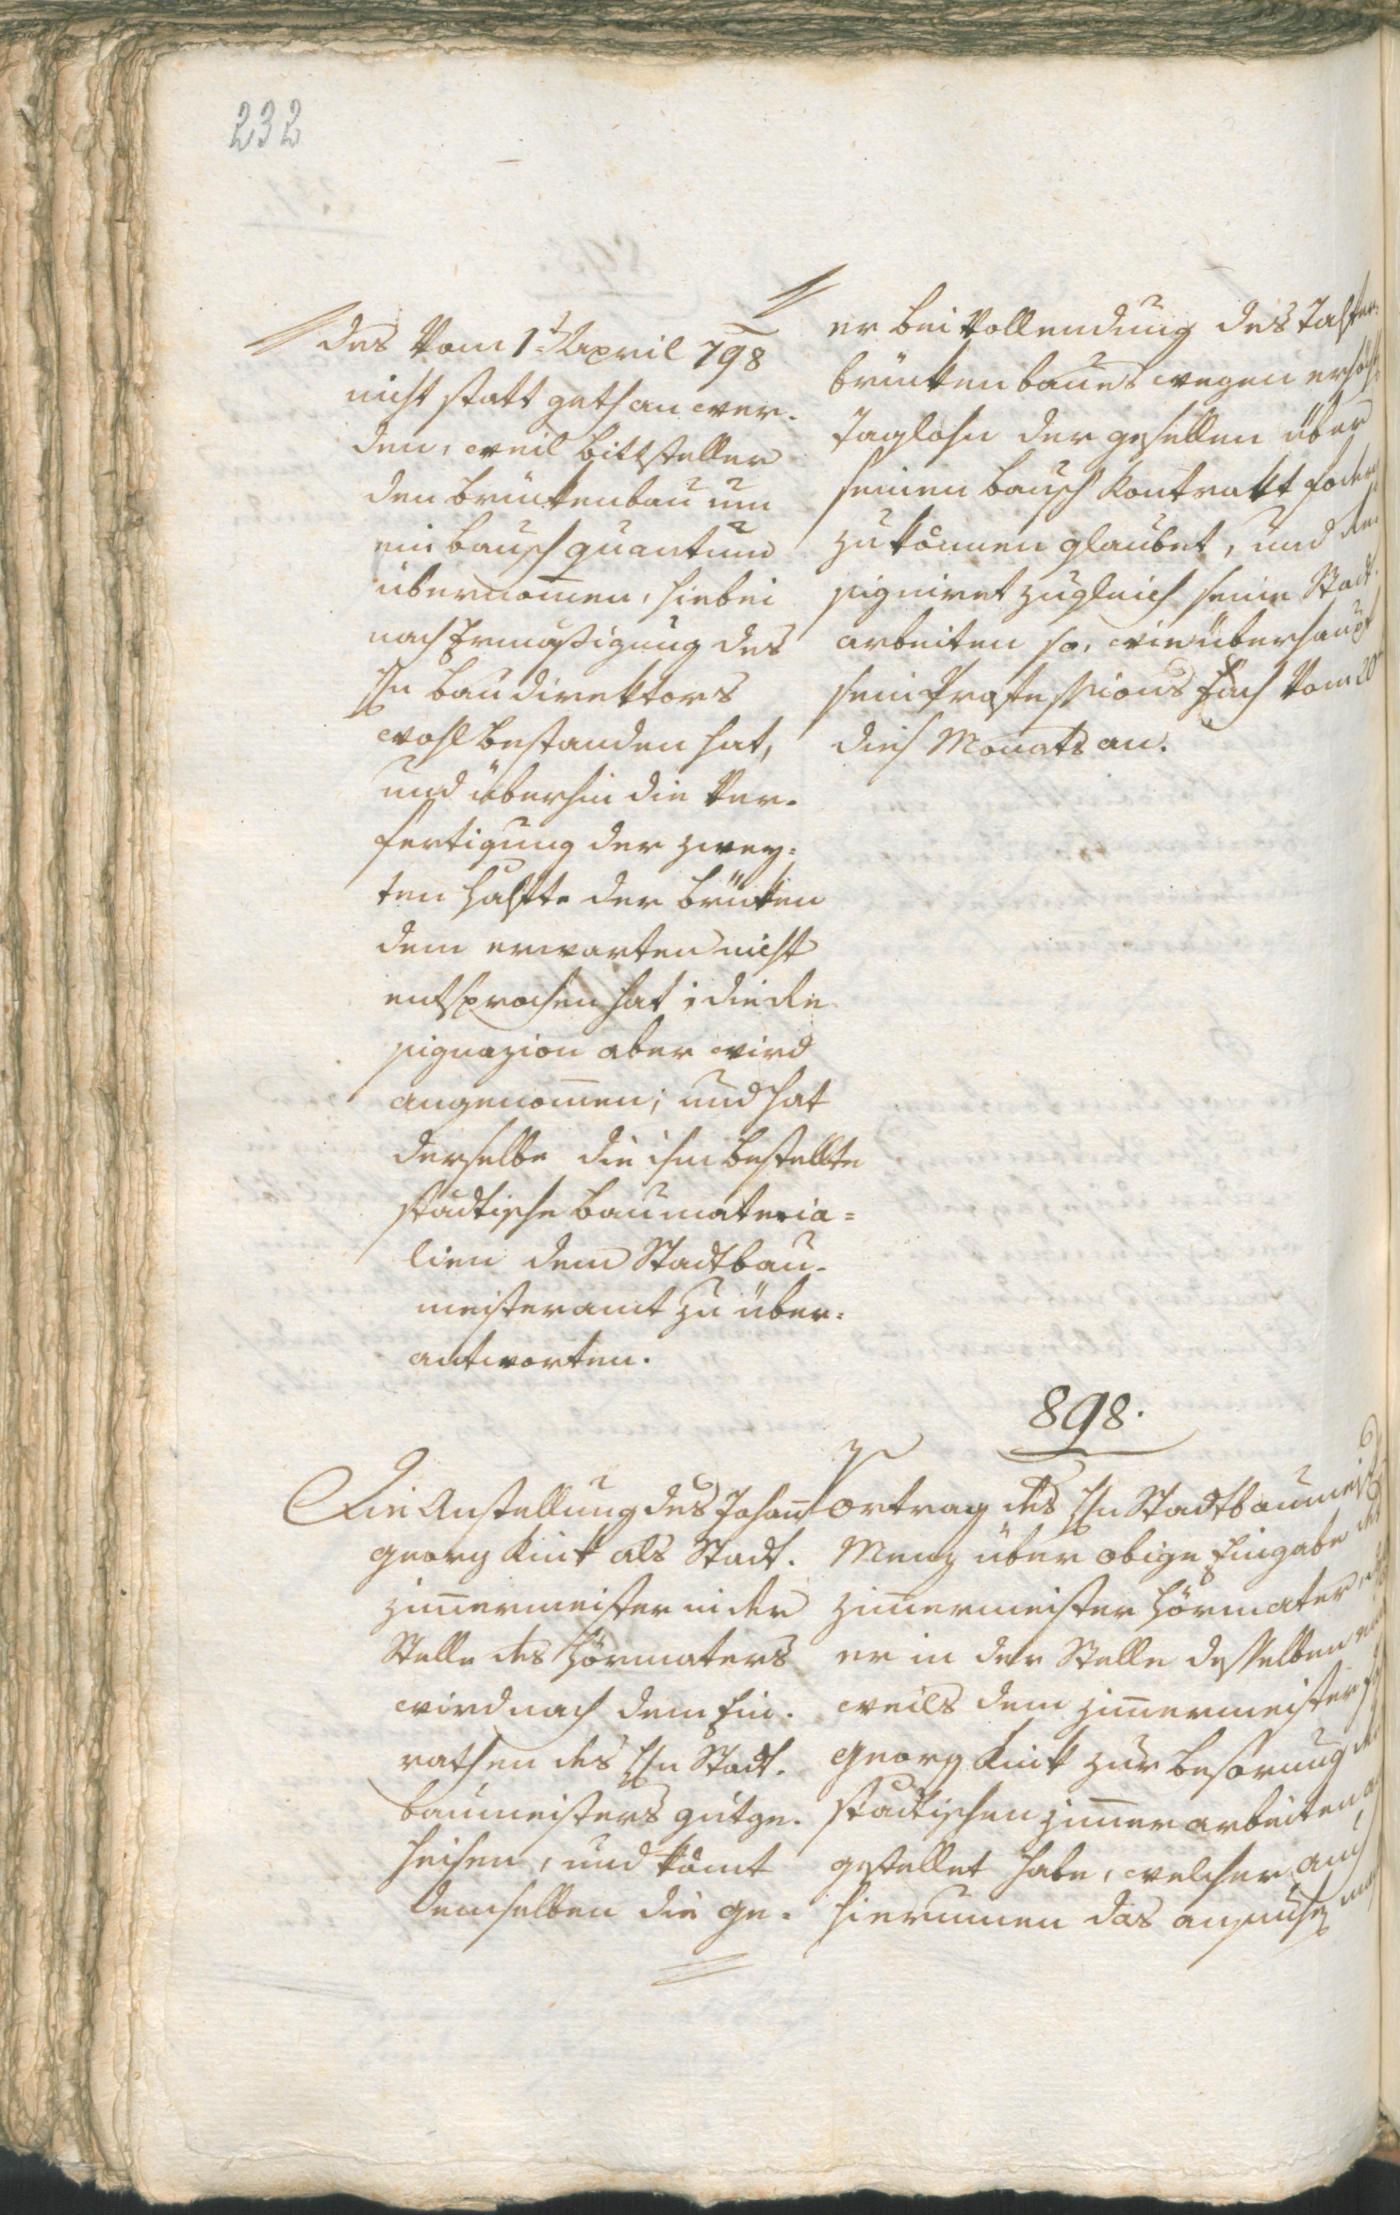 232
des vom 1t April 798
nicht statt gethan wer-
den, weil Bittsteller
den Brückenbau um
ein Bausch quantum
übernom̄en, hiebei
nach Ermäßigung des
Hn Baudirektors
wohl bestanden hat,
und überhin die Ver-
fertigung der zwey-
ten Hälfte der Brüken
dem erwarten nicht
entsprochen hat; die Re
signazion aber wird
angenom̄en, und hat
derselbe die ihm bestellte
städtische Baumateria=
lien dem Stadtbau-
meisteramt zu über=
antworten.
er bei Vollendung des Talfer-
brückenbaues wegen erhöht
Taglohn der gesellen über
seinen Bausch Kontrakt fodern
zu können glaubet, und Re
signiret zugleich seine Stadt-
arbeiten so, wie überhaupt
sein Professions Fach vom 20
dies Monats an.
898.
Die Anstellung des Johan̄
Georg Kink als Stadt-
zim̄ermeister in der
Stelle des Hörmaters
wird nach dem Ein-
rathen des Hn Stadt-
baumeisters gutge-
heisen, und kom̄t
demselben die ge-
Vortrag des Hn Stadtbaumeist
Menz über obige Eingabe des
Zim̄ermeister Hörmater,
er in der Stelle desselben
weils dem Zim̄ermeister
Georg Kink zur Besorung der
städtischen Zim̄erarbeiten
gestellet habe, welcher auch
hierumen das ansuchen